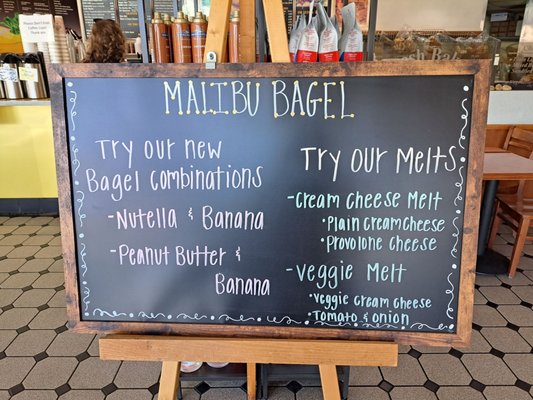 MALIBU BAGEL
Try our new
Bagel combinations
-Nutella & Banana
-Peanut Butter &
Banana
Try our Melts
-Cream Cheese Melt
•Plain Creamcheese
•Provolone Cheese
-Veggie Melt
•Veggie cream cheese
•Tomato & onion